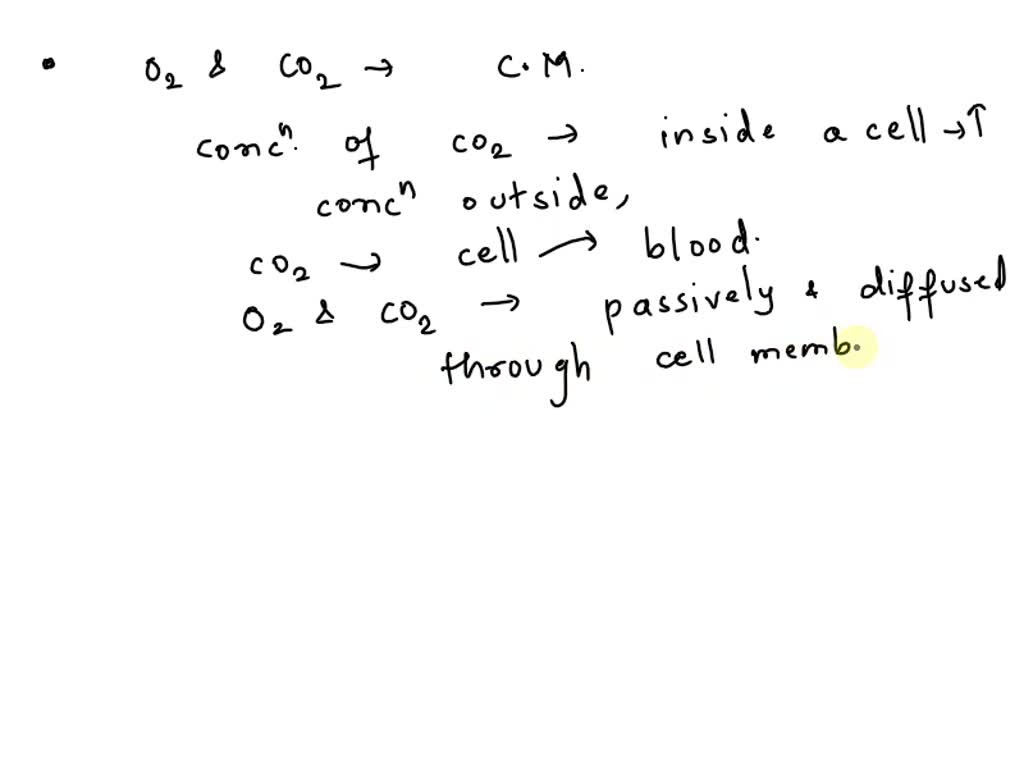 • O₂ & CO₂ → C.M.
concⁿ. of CO₂ → inside a cell → ↑
concⁿ outside,
CO₂ → cell → blood.
O₂ & CO₂ → passively & diffused
through cell memb.